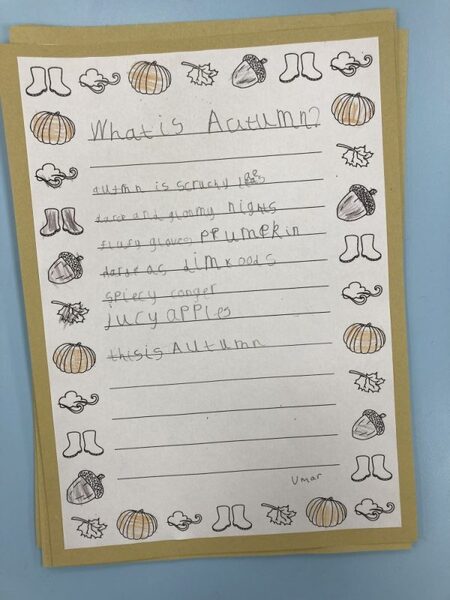 What is Autumn?
autmn is scruchy
darce and gloomy nights
fluffy gloves ppumpkin
as dimkoods
spiecy conger
jucy apples
this is Autumn
Umar